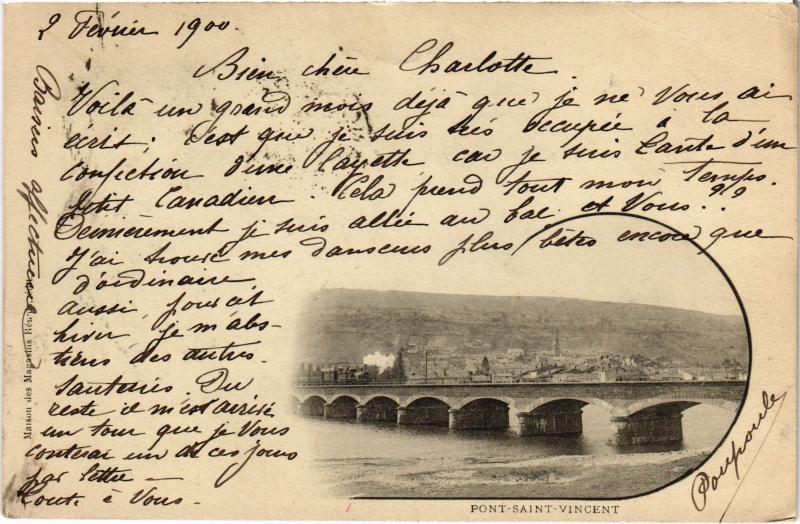 2 Février 1900.
Bien chère Charlotte.
Voilà un grand mois déjà que je ne Vous ai
écrit; C'est que je suis très occupée à la
confection d'une layette car je suis tante d'un
petit Canadien. Cela prend tout mon temps.
Dernièrement je suis allée au bal. et Vous??
J'ai trouvé mes danseurs plus bêtes encore que
d'ordinaire
aussi, pour cet
hiver je m'abs-
tiens des autres
sauteries. Du
reste il m'est arrivé
un tour que je Vous
conterai un de ces jours
par lettre -
Toute à Vous.
Baisers affectueux
Poupoule
Maison des Magasins Réu
PONT-SAINT-VINCENT